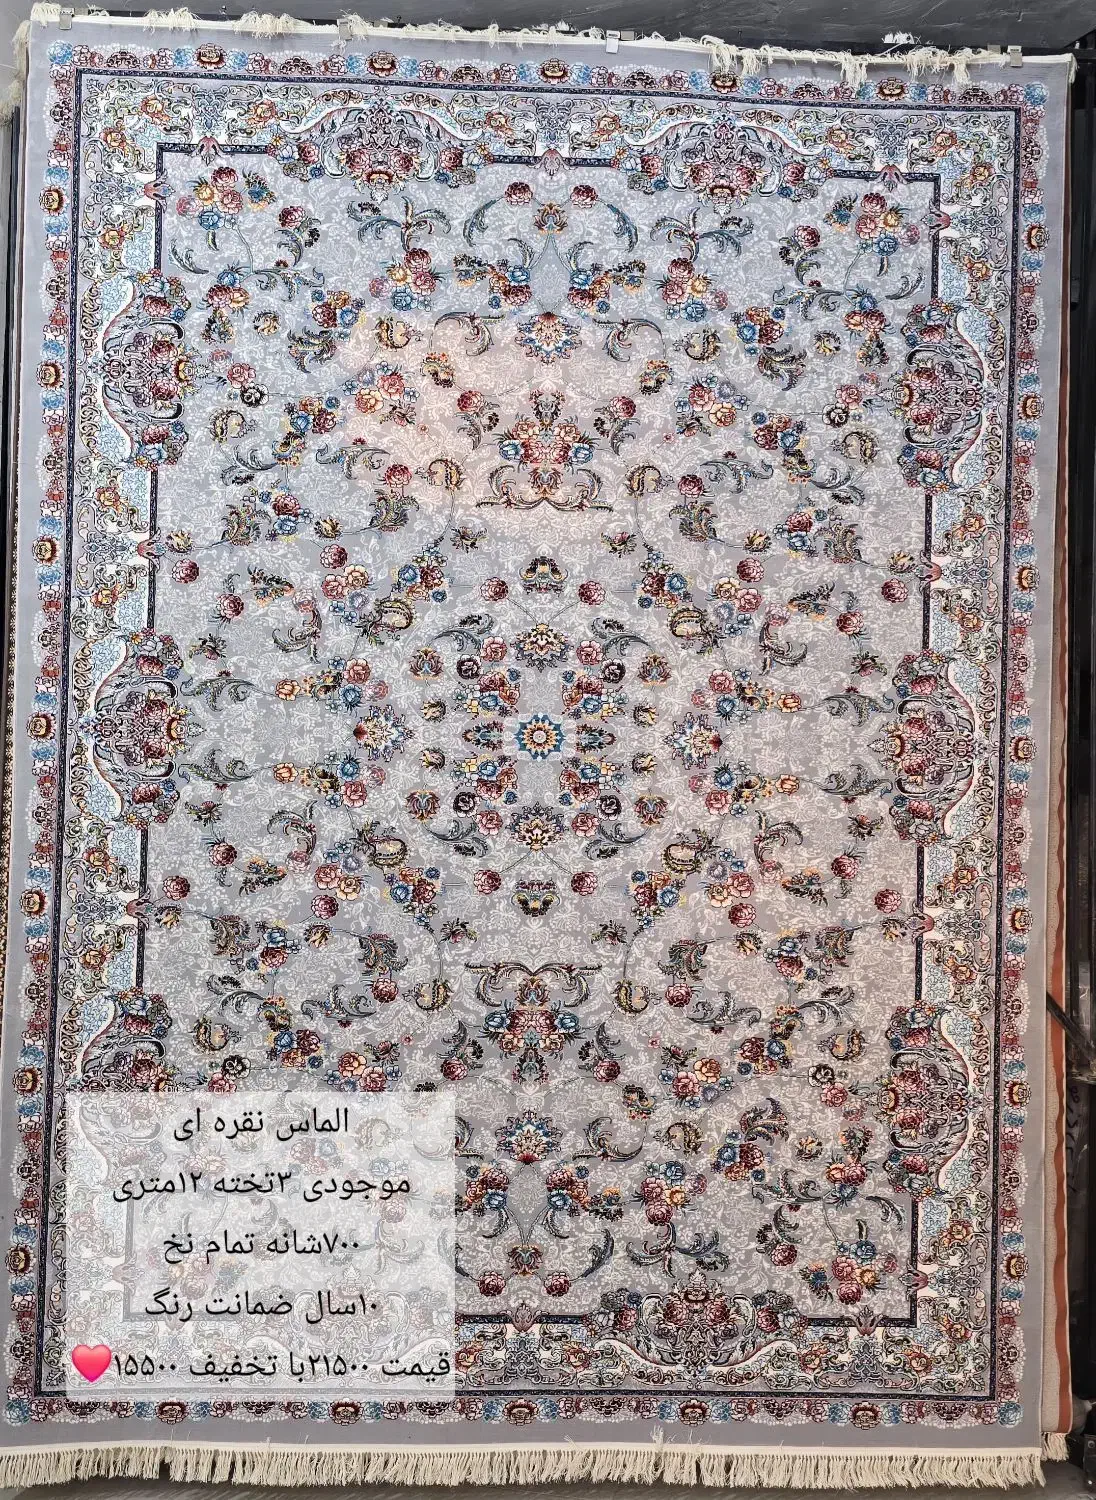 الماس نقره ای
موجودی ۳تخته ۱۲متری
۷۰۰شانه تمام نخ
۱۰سال ضمانت رنگ
قیمت ۲۱۵۰۰با تخفیف ۱۵۵۰۰❤️